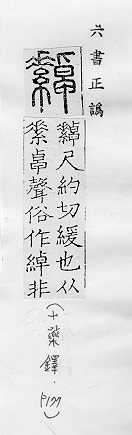 六書正譌
繛
繛尺約切緩也从
素卓聲俗作綽非
(十藥鐸.p177)